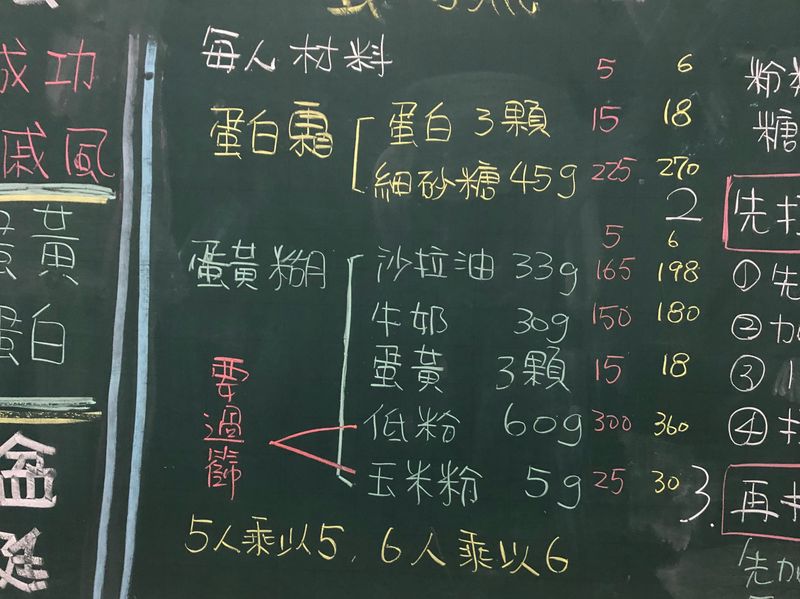 成功
戚風
蛋黃
蛋白
每人材料 5 6
蛋白霜
蛋白 3顆 15 18
細砂糖 45g 225 270
5 6
蛋黃糊
沙拉油 33g 165 198
牛奶 30g 150 180
蛋黃 3顆 15 18
低粉 60g 300 360
玉米粉 5g 25 30
要過篩
5人乘以5,6人乘以6
粉
糖
2 先打
① 先
② 加
③
④
3. 再
先加